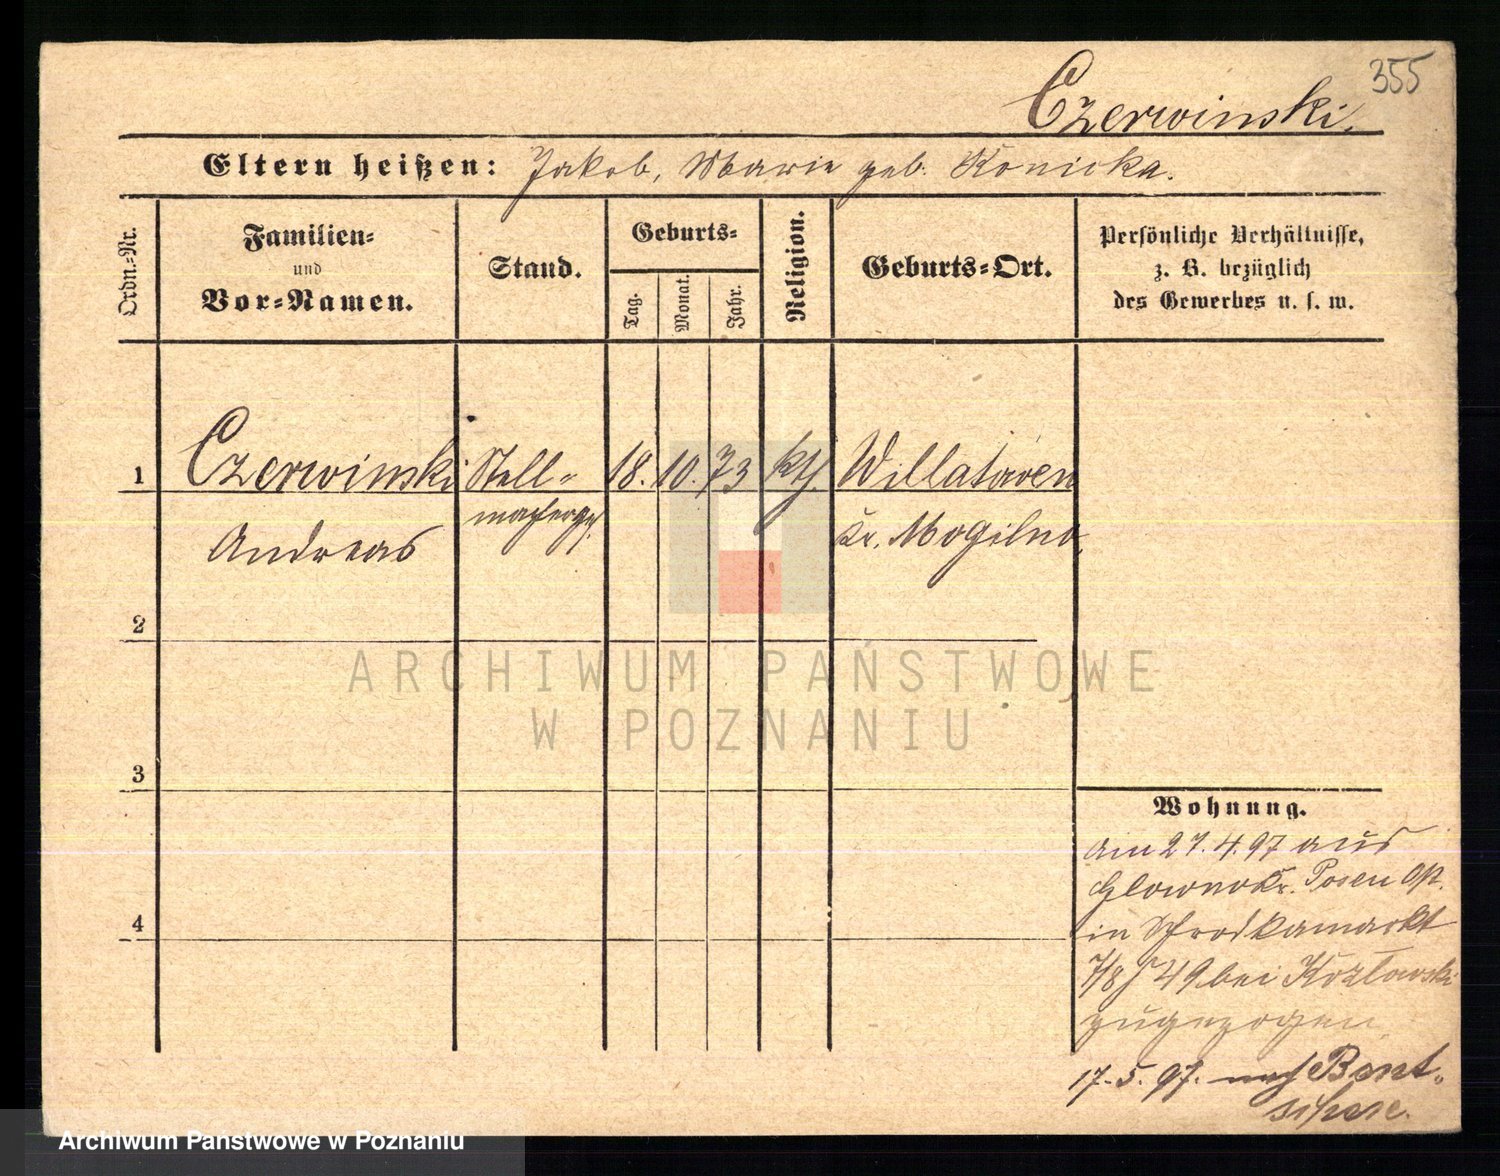 355
Czerwinski.
Eltern heißen: Jakob, Marie geb. Konicka.
Ordn.-Nr.
Familien-
und
Vor-Namen.
Stand.
Geburts-
Tag.
Monat.
Jahr.
Religion.
Geburts-Ort.
Persönliche Verhältnisse,
z. B. bezüglich
des Gewerbes u. s. w.
1 Czerwinski Stell- 18. 10. 73 kth. Willatowen
machergs.
Andreas
Kr. Mogilno.
2
ARCHIWUM PAŃSTWOWE
W POZNANIU
3
Wohnung.
am 27.4.97 aus
Glowno Kr. Posen Ost.
4
in Schrodkamarkt
7/8 49 bei Kozlowski
zugezogen
17.5.97. nach
Archiwum Państwowe w Poznaniu